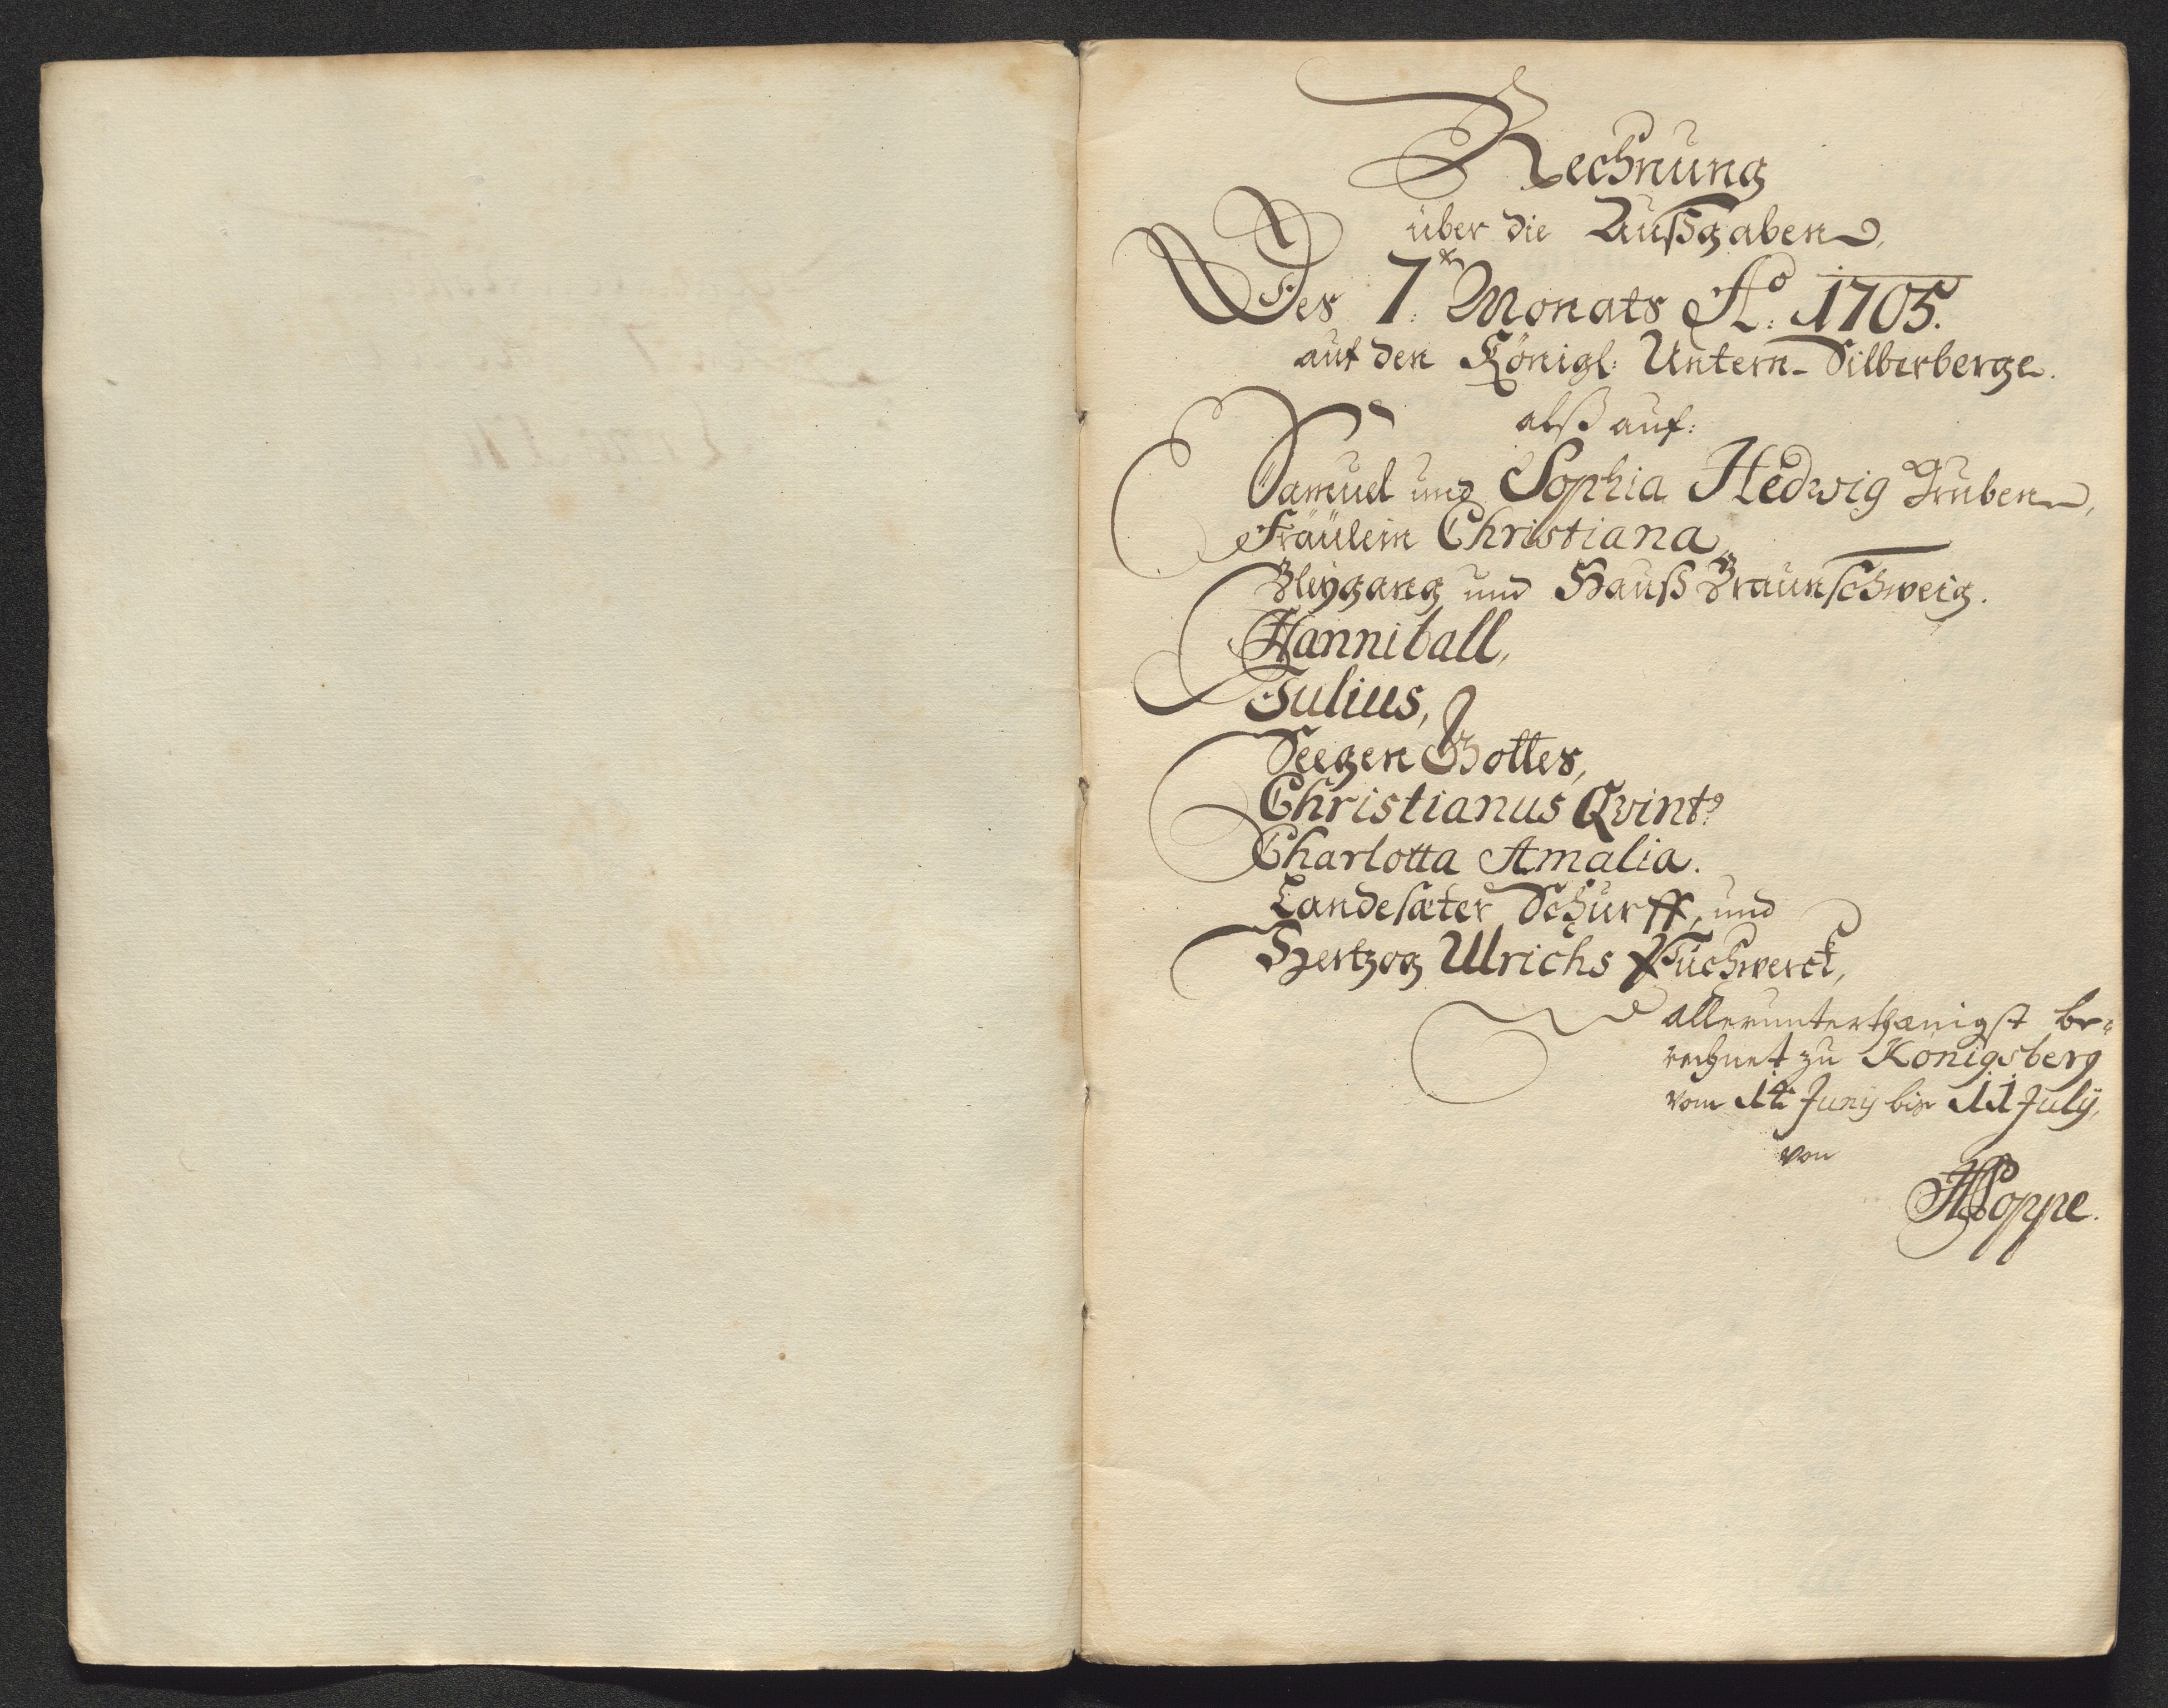 Rechnung
über die Außgaben,
Des 7. Monats Ao: 1705.
auf den Königl: Untern-Silberberge.
alß auf:
Samuel und Sophia Hedwig Gruben,
Fräulein Christiana,
Bleygang und Hauß Braunschweig.
Hanniball,
Julius,
Seegen Gottes,
Christianus Qvint9
Charlotta Amalia.
Landesater Schurff, und
Hertzog Ulrichs Puchwerck,
allerunterthänigst be-
rechnet zu Königsberg
vom 14 Junij bis 11 July,
von
HPoppe.